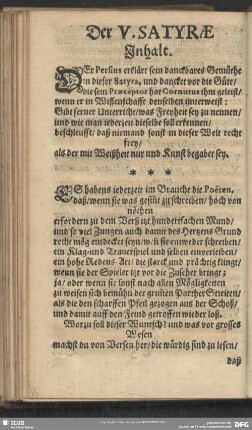 Der V. SATYRÆ
Inhalt.
DEr Persius erklärt sein danckbares Gemüthe
in dieser Satyra, und dancket vor die Güte/
die sein Præceptor hat Cornutus ihm geleist/
wenn er in Wissenschafft denselben unterweist:
Gibt ferner Unterricht/was Freyheit sey zu nennen/
und wie man iederzeit dieselbe soll erkennen/
beschleusst/ daß niemand sonst in dieser Welt recht
frey/
als der mit Weißheit nur und Kunst begabet sey.
* * *
ES habens iederzeit im Brauche die Poëten,
daß/wenn sie was gesiñt zu schreiben/ hoch von
nöthen
erfordern zu dem Verß itzt hundertfachen Mund/
und so viel Zungen auch damit des Hertzens Grund
recht mög entdecket seyn/wañ sie entweder schreiben/
ein Klag-und Traurspiel und selben einverleiben/
ein hohe Redens-Art/ die starck und prächtig klingt/
wenn sie der Spieler itzt vor die Zuscher bringt;
ja/ oder wenn sie sonst nach allen Möglichkeiten
zu weisen sich bemühn der grimen Parther Streiten/
als die den scharffen Pfeil gezogen aus der Schoß/
und damit auff den Feind getroffen wieder loß.
Worzu soll dieser Wuntsch? und was vor grosses
Wesen
machst du von Versen her/ die würdig sind zu lesen/
daß
SLUB
DFG